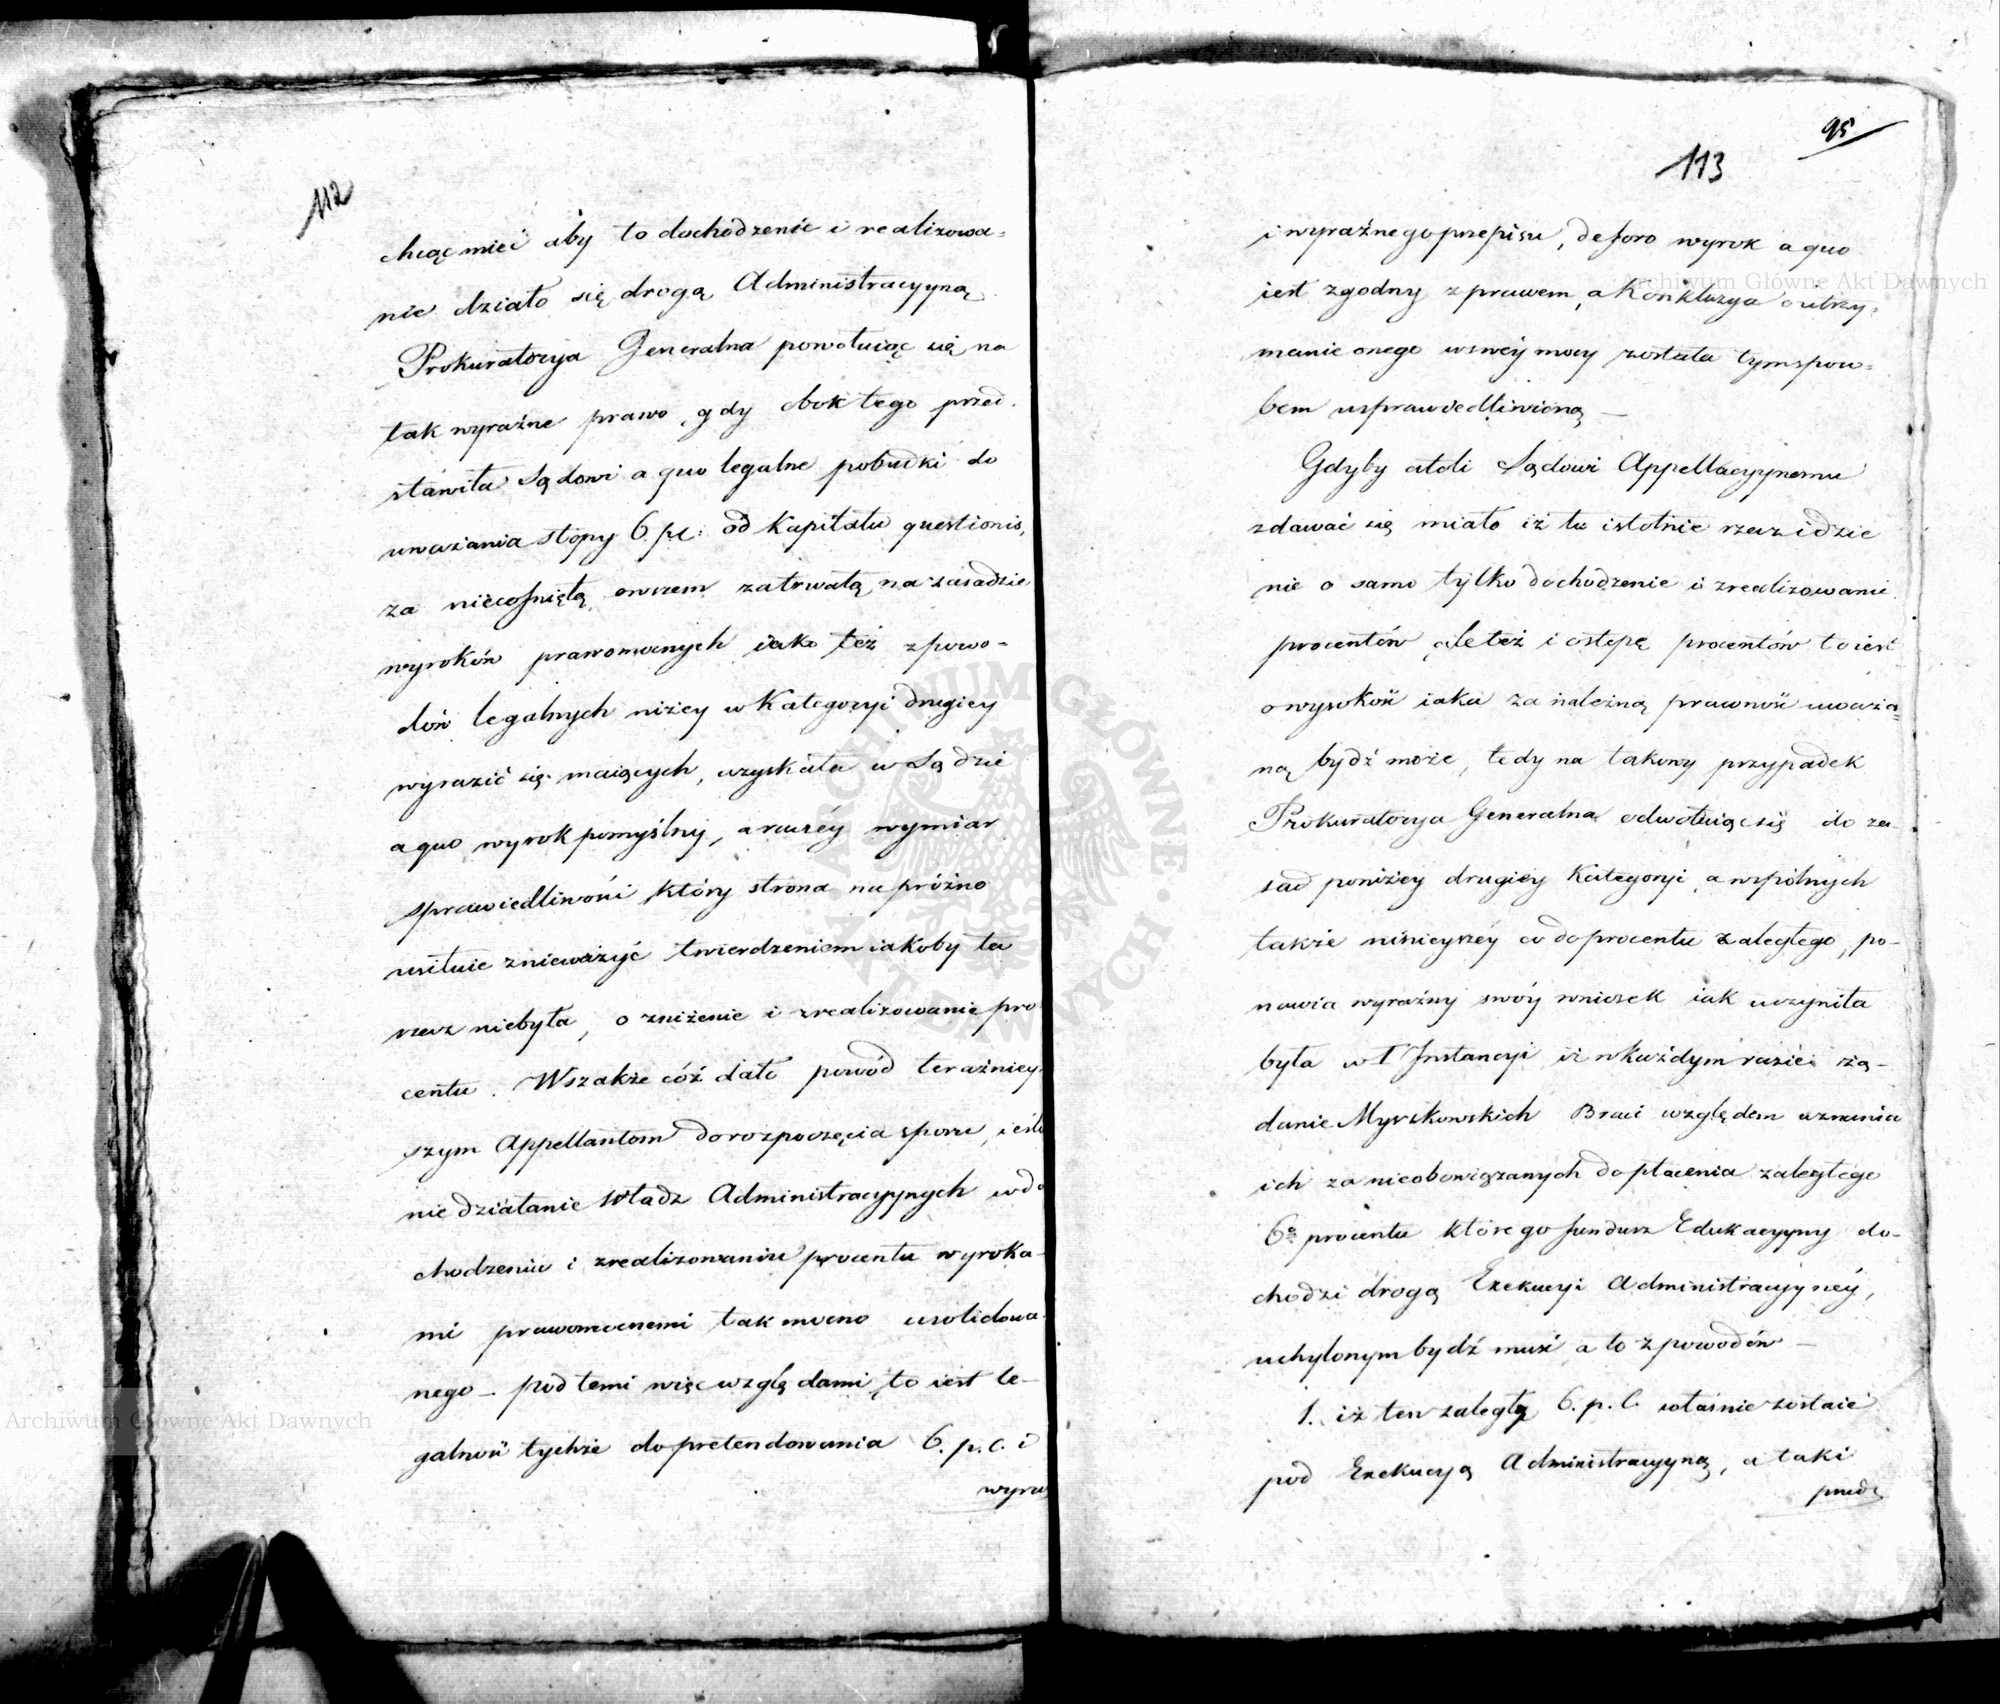 112
chcąc mieć aby to dochodzenie i realizowa=
nie działo się drogą Administracyyną
Prokuratorya Generalna powołuiąc się na
tak wyraźne prawo, gdy obok tego przed
stawiła Sądowi a quo legalne pobudki do
uważania stopy 6. pc: od Kapitału questionis,
za niecofniętą, owszem zatrwałą, na zasadzie
wyroków prawomocnych iako też z powo-
dów legalnych niżey w Kategoryi drugiey
wyrazić się maiących, uzyskała w Sądzie
a quo wyrok pomyślny, a raczéy wymiar
sprawiedliwości który strona na próżno
usiłuie znieważyć twierdzeniem iakoby tu
rzecz niebyła, o zniżenie i zrealizowanie pro
centu. Wszakże cóż dało powód teraźniey
szym Appellantom do rozpoczęcia sporu, ieśli
nie działanie Władz Administracyynych w do
chodzeniu i zrealizowaniu procentu wyroka-
mi prawomocnemi tak mocno usolidowa
nego – pod temi więc względami, to iest le-
galność tychże do pretendowania 6. p. c. i
wyra
95
113
i wyraźnego przepisu, de foro wyrok a quo
iest zgodny z prawem, a Konkluzya o utrzy=
manie onego w swéy mocy została tym sposo=
bem usprawiedliwioną –
Gdyby atoli Sądowi Appellacyynemu
zdawać się miało iż tu istotnie rzecz idzie
nie o samo tylko dochodzenie i zrealizowanie
procentów, ale też i o stopę procentów to iest
o wysokość iaka za należną prawność uważa=
ną bydź może, tedy na takowy przypadek
Prokuratorya Generalna odwołuiąc się do za-
sad poniżey drugiey Kategoryi, a wspólnych
także ninieyszéy co do procentu zaległego, po-
nawia wyraźny swóy wniosek iak uczyniła
była w I Instancyi iż w każdym razie żą-
danie Myszkowskich Braci względem uznania
ich za nieobowiązanych do płacenia zaległego
6go procentu którego fundusz Edukacyyny do-
chodzi drogą Exekucyi Administracyynéy,
uchylonym bydź musi a to z powodów –
1. iż ten zaległy 6. p. C. właśnie zostaie
pod Exekucyą Administracyyną, a taki
przed
Archiwum Główne Akt Dawnych
Archiwum Główne Akt Dawnych
ARCHIWUM GŁÓWNE · AKT DAWNYCH ·